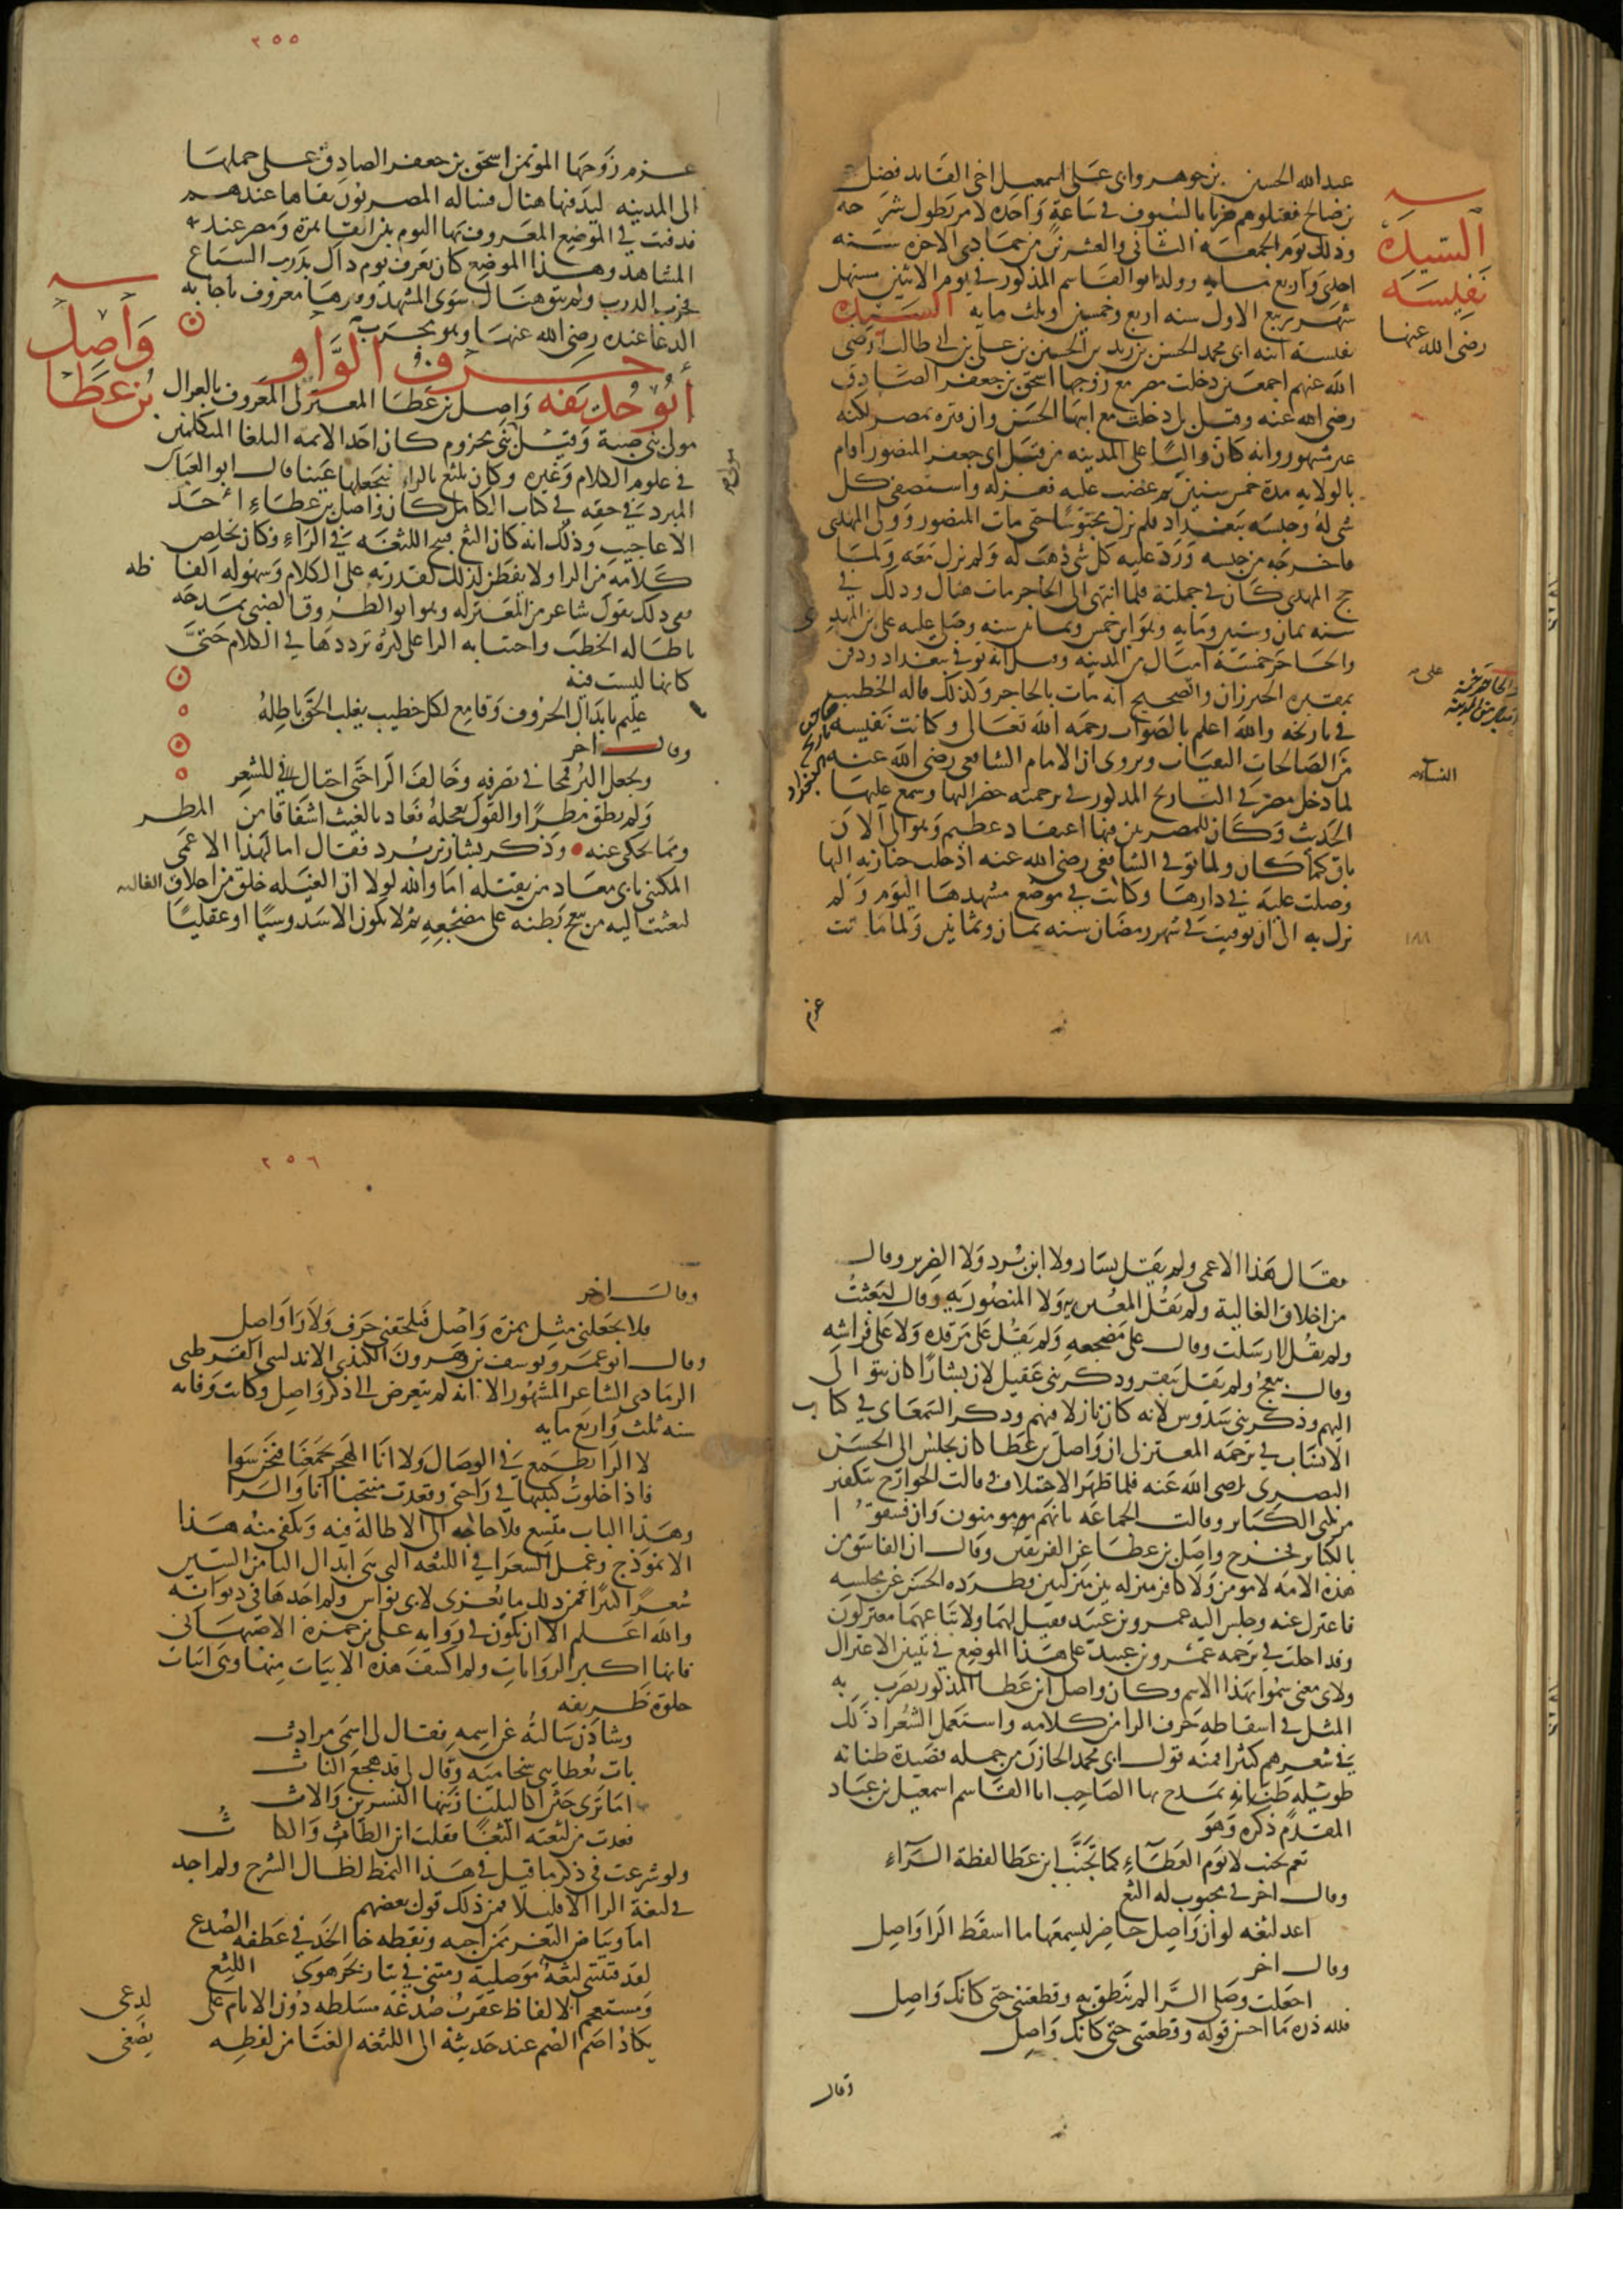 عبد الله الحسين بن جوهر وابي علي اسمعيل اخي القايد فضل
بن ضالح فقتلوهم ضربا بالسيوف في ساعة واحدة لامر يطول شرحه
وذلك يوم الجمعة الثاني والعشرين من جمادى الاخرة سنه
احدى واربع مايه وولد ابو القاسم المذكور في يوم الاثنين مستهل
شهر ربيع الاول سنه اربع وخمسين وثلث مايه السيدة
السيدة
نفيسة
رضي الله عنها
نفيسة ابنة ابي محمد الحسن بن زيد بن الحسن بن علي بن ابي طالب رضي
الله عنهم اجمعين دخلت مصر مع زوجها اسحق بن جعفر الصادق
رضي الله عنه وقيل بل دخلت مع ابيها الحسن وان قبره بمصر لكنه
غير مشهور وانه كان واليا على المدينه من قبل ابي جعفر المنصور اقام
بالولايه مدة خمس سنين ثم غضب عليه فعزله واستصفى كل
شي له وحبسه ببغداد فلم يزل محبوسا حتى مات المنصور وولى المهدي
فاخرجه من حبسه ورد عليه كل شي ذهب له ولم يزل معه ولما
حج المهدي كان في جملته فلما انتهى الى الحاجر مات هناك وذلك في
سنه ثمان وستين ومايه وهو ابن خمس وثمانين سنه وصلى عليه علي بن المهدي
والحاجر خمسة اميال من المدينه وقيل انه توفي ببغداد ودفن
بمقبره الخيزران والصحيح انه مات بالحاجر وكذلك قاله الخطيب
في تاريخه والله اعلم بالصواب رحمه الله تعالى وكانت نفيسه
من الصالحات التقيات ويروى ان الامام الشافعي رضي الله عنه
لما دخل مصر في التاريخ المذكور في ترجمته حضر اليها وسمع عليها
الحديث وكان للمصريين فيها اعتقاد عظيم وهو الى الان
باق كما كان ولما توفي الشافعي رضي الله عنه ادخلت جنازته اليها
وصلت عليه في دارها وكانت في موضع مشهدها اليوم ولم
تزل به الى ان توفيت في شهر رمضان سنه ثمان ومايتين ولما ماتت
عزم
٢٥٥
عزم زوجها الموتمن اسحق بن جعفر الصادق على حملها
الى المدينه ليدفنها هناك فساله المصريون بقاها عندهم
فدفنت في الموضع المعروف بها اليوم بين القاهرة ومصر عند
المشاهد وهذا الموضع كان يعرف يوم ذاك بدرب السباع
فخرب الدرب ولم يبق هناك سوى المشهد وقبرها معروف باجابه
الدعا عنده رضي الله عنها وهو مجرب
حرف الواو
واصل
بن عطا
ابو حذيفه واصل بن عطا المعتزلي المعروف بالغزال
مولى بني ضبة وقيل بني مخزوم كان احد الايمه البلغا المتكلمين
في علوم الكلام وغيره وكان يلثغ بالراء فيجعلها غينا قال ابو العباس
المبرد في حقه في كتاب الكامل كان واصل بن عطاء احد
الاعاجيب وذلك انه كان الثغ قبيح اللثغه في الراء فكان يخلص
كلامه من الرا ولا يفطن لذلك لقدرته على الكلام وسهوله الفاظه
ففي ذلك يقول شاعر من المعتزله وهو ابو الطروق الضبي يمدحه
باطاله الخطب واجتنابه الرا على كثرة ترددها في الكلام حتى
كانها ليست فيه
عليم بابدال الحروف وقامع لكل خطيب يغلب الحق باطله
وقال اخر
ويجعل البر قمحا في تصرفه وخالف الرا حتى احتال للشعر
ولم يطق مطرا والقول يعجله فعاد بالغيث اشفاقا من المطر
ومما يحكى عنه وذكر بشار بن برد فقال اما لهذا الاعمى
المكنى بابي معاد من يقتله اما والله لولا ان الغيله خلق من اخلاق الغاليه
لبعثت اليه من يبعج بطنه على مضجعه ثم لا يكون الا سدوسيا او عقليا
فقال هذا الاعمى ولم يقل بشار ولا ابن برد ولا الضرير وقال
من اخلاق الغالية ولم يقل المغيريه ولا المنصوريه وقال لبعثت
ولم يقل لارسلت وقال على مضجعه ولم يقل على مرقده ولا على فراشه
وقال يبعج ولم يقل يبقر وذكر بني عقيل لان بشارا كان يتوالى
اليهم وذكر بني سدوس لانه كان نازلا فيهم وذكر السمعاني في كتاب
الانساب في ترجمه المعتزلي ان واصل بن عطا كان يجلس الى الحسن
البصري رضي الله عنه فلما ظهر الاختلاف وقالت الخوارج بتكفير
مرتكبي الكباير وقالت الجماعه بانهم مومنون وان فسقوا
بالكباير فخرج واصل بن عطا عن الفريقين وقال ان الفاسق من
هذه الامه لا مومن ولا كافر منزله بين منزلتين فطرده الحسن عن مجلسه
فاعتزل عنه وجلس اليه عمرو بن عبيد فقيل لهما ولاتباعهما معتزلون
وقد احلت في ترجمه عمرو بن عبيد على هذا الموضع في تبيين الاعتزال
ولاي معنى سموا بهذا الاسم وكان واصل ابن عطا المذكور يضرب به
المثل في اسقاطه حرف الرا من كلامه واستعمل الشعرا ذلك
في شعرهم كثيرا فمنه قول ابي محمد الخازن من جمله قصيدة طنانه
طويله طنانه يمدح بها الصاحب ابا القاسم اسمعيل بن عباد
المقدم ذكره وهو
نعم تجنب لا يوم العطاء كما تجنب ابن عطا لفظة الراء
وقال اخر في محبوب له الثغ
اعد لثغه لو ان واصل حاضر ليسمعها ما اسقط الرا واصل
وقال اخر
اجعلت وصلي الرا لم تنطق به وقطعتني حتى كانك واصل
فلله دره ما احسن قوله وقطعتني حتى كانك واصل
وقال
٢٥٦
وقال اخر
فلا تجعلني مثل همزة واصل فيلحقني حرف ولا را واصل
وقال ابو عمرو يوسف بن هرون الكندي الاندلسي القرطبي
الرمادي الشاعر المشهور الا انه لم يتعرض الى ذكر واصل وكانت وفاته
سنه ثلث واربع مايه
لا الرا تطمع في الوصال ولا انا الهجر يجمعنا فنحن سوا
فاذا خلوت كتبتها في راحتي وقعدت منتحبا انا والرا
وهذا الباب متسع فلا حاجه الى الاطالة فيه ويكفي منه هذا
الانموذج وعمل الشعرا في اللثغه التي هي ابدال الثا من السين
شعرا كثيرا فمن ذلك ما يعزى لابي نواس ولم اجدها في ديوانه
والله اعلم الا ان تكون في روايه علي بن حمزة الاصبهاني
فانها اكبر الروايات ولم اكشف هذه الابيات منها وهي ابيات
حلوة ظريفه
وشادن سالته عن اسمه فقال لي اسمي مرداث
بات يعطايني سخاميه وقال لي قد هجع الناث
اما ترى حثن اكاليلنا زينها النسرين والاث
فعدت من لثغته الثغا فقلت اين الطاث والكاث
ولو شرعت في ذكر ما قيل في هذا النمط لطال الشرح ولم اجد
في لثغة الرا الا قليلا فمن ذلك قول بعضهم
اما وبياض الثغر ممن احبه ونقطه خال الخد في عطفه الصدغ
لقد فتنتني لثغة موصلية رمتني في تيار بحر هوى اللثغ
ومستعجم الالفاظ عقرب صدغه مسلطه دون الانام على لدغي
يكاد اصم الصم عند حديثه الى اللثغه الغنا من لفظه يصغي